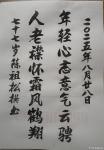 二〇二五年八月廿八日
年轻心志意气云骋
人老襟怀霜风鹤翔
七十七岁陈祖松撰書